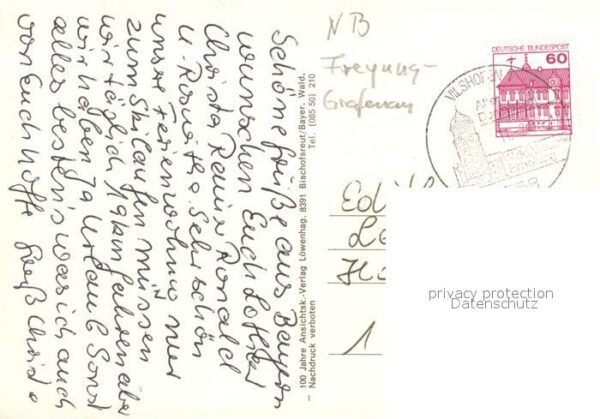 Schöne Grüße aus Bayern
wünschen Euch Lothar
Christa Rainer Ronald
u. Roswitha. Sehr schön
unsre Ferienwohnung nur
zum Skilaufen müssen
wir täglich 19 km fahren aber
wir haben ja Urlaub Sonst
alles bestens was ich auch
von Euch hoffe Gruß Christa
100 Jahre Ansichtsk.-Verlag Löwenhag, 8391 Bischofsreut/Bayer. Wald.
Tel. (085 50) 210
Nachdruck verboten
1
NB
Freyung-
Grafenau
DEUTSCHE BUNDESPOST
60
VILSHOFEN
Edith
1
privacy protection
Datenschutz